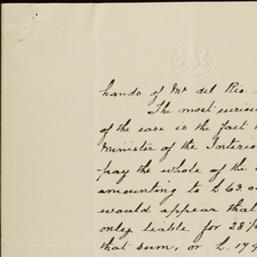 hands of Mr del Rio.
The most curious
of the case is the fact
Minister of the Interio
pay the whole of the
amounting to £63.0
would appear that
only liable for 28
that sum, or £.179